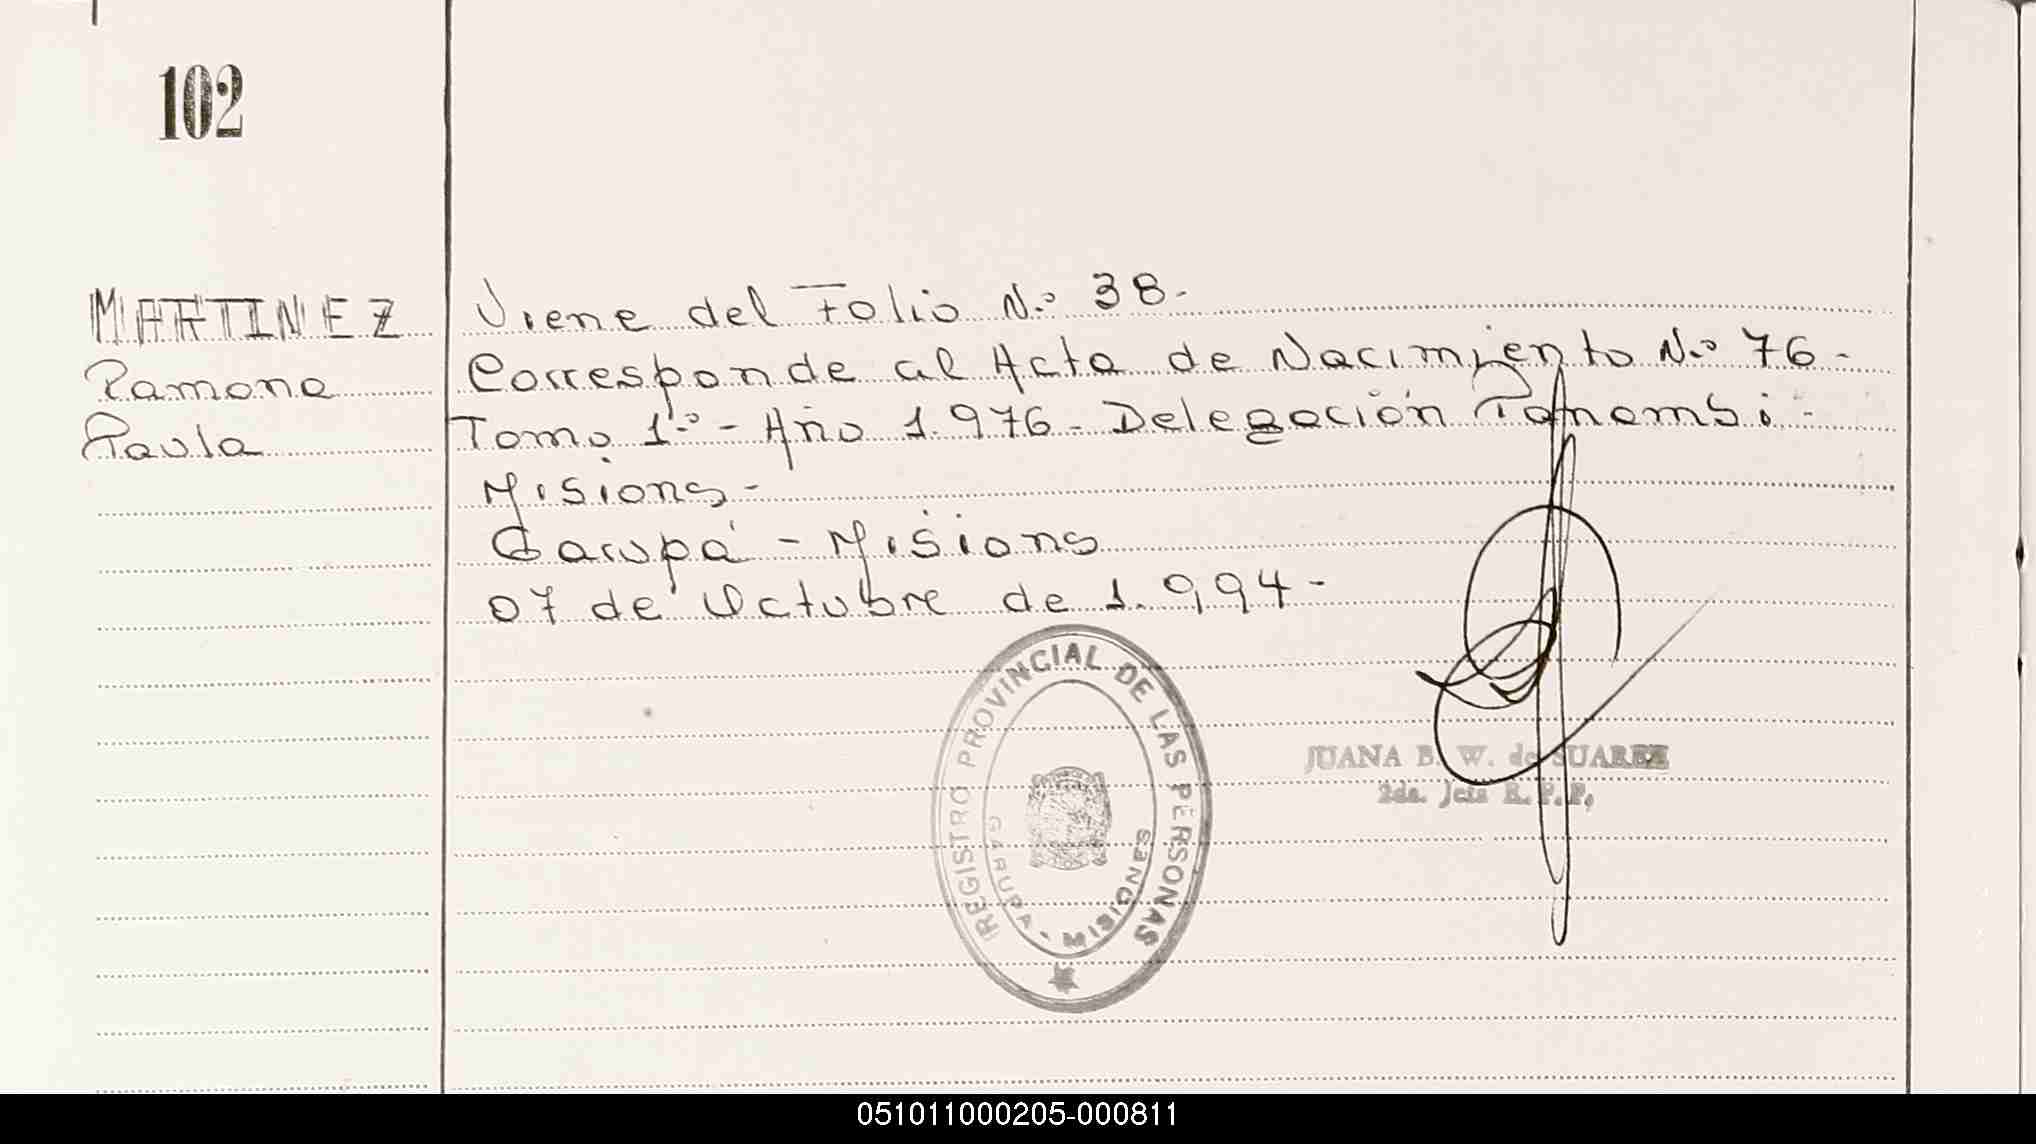 102
MARTINEZ
Ramona
Paula
Viene del Folio N.º 38.
Corresponde al Acta de Nacimiento N.º 76.
Tomo 1.º - Año 1.976. Delegación Panambi.
Misions.
Garupá - Misions
07 de Octubre de 1.994.
REGISTRO PROVINCIAL DE LAS PERSONAS
GARUPA - MISIONES
JUANA B. W. de SUAREZ
2da. Jefa R. P. P.
051011000205-000811